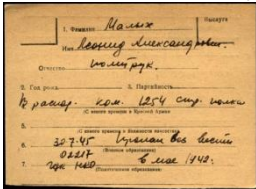 Выслуга
1. Фамилия Малых
Имя Леонид Александрович
Отчество политрук.
2. Год рожд. 3. Партийность
В распор. ком. 1254 стр. полка
(С какого времени в Красной Армии)
5.
(С какого времени в занимаемой должности)
6. 30.7.45 Пропал без вести
(Военное образование)
02217
7. ГУК НКО в мае 1942г.
(Политическое образование)